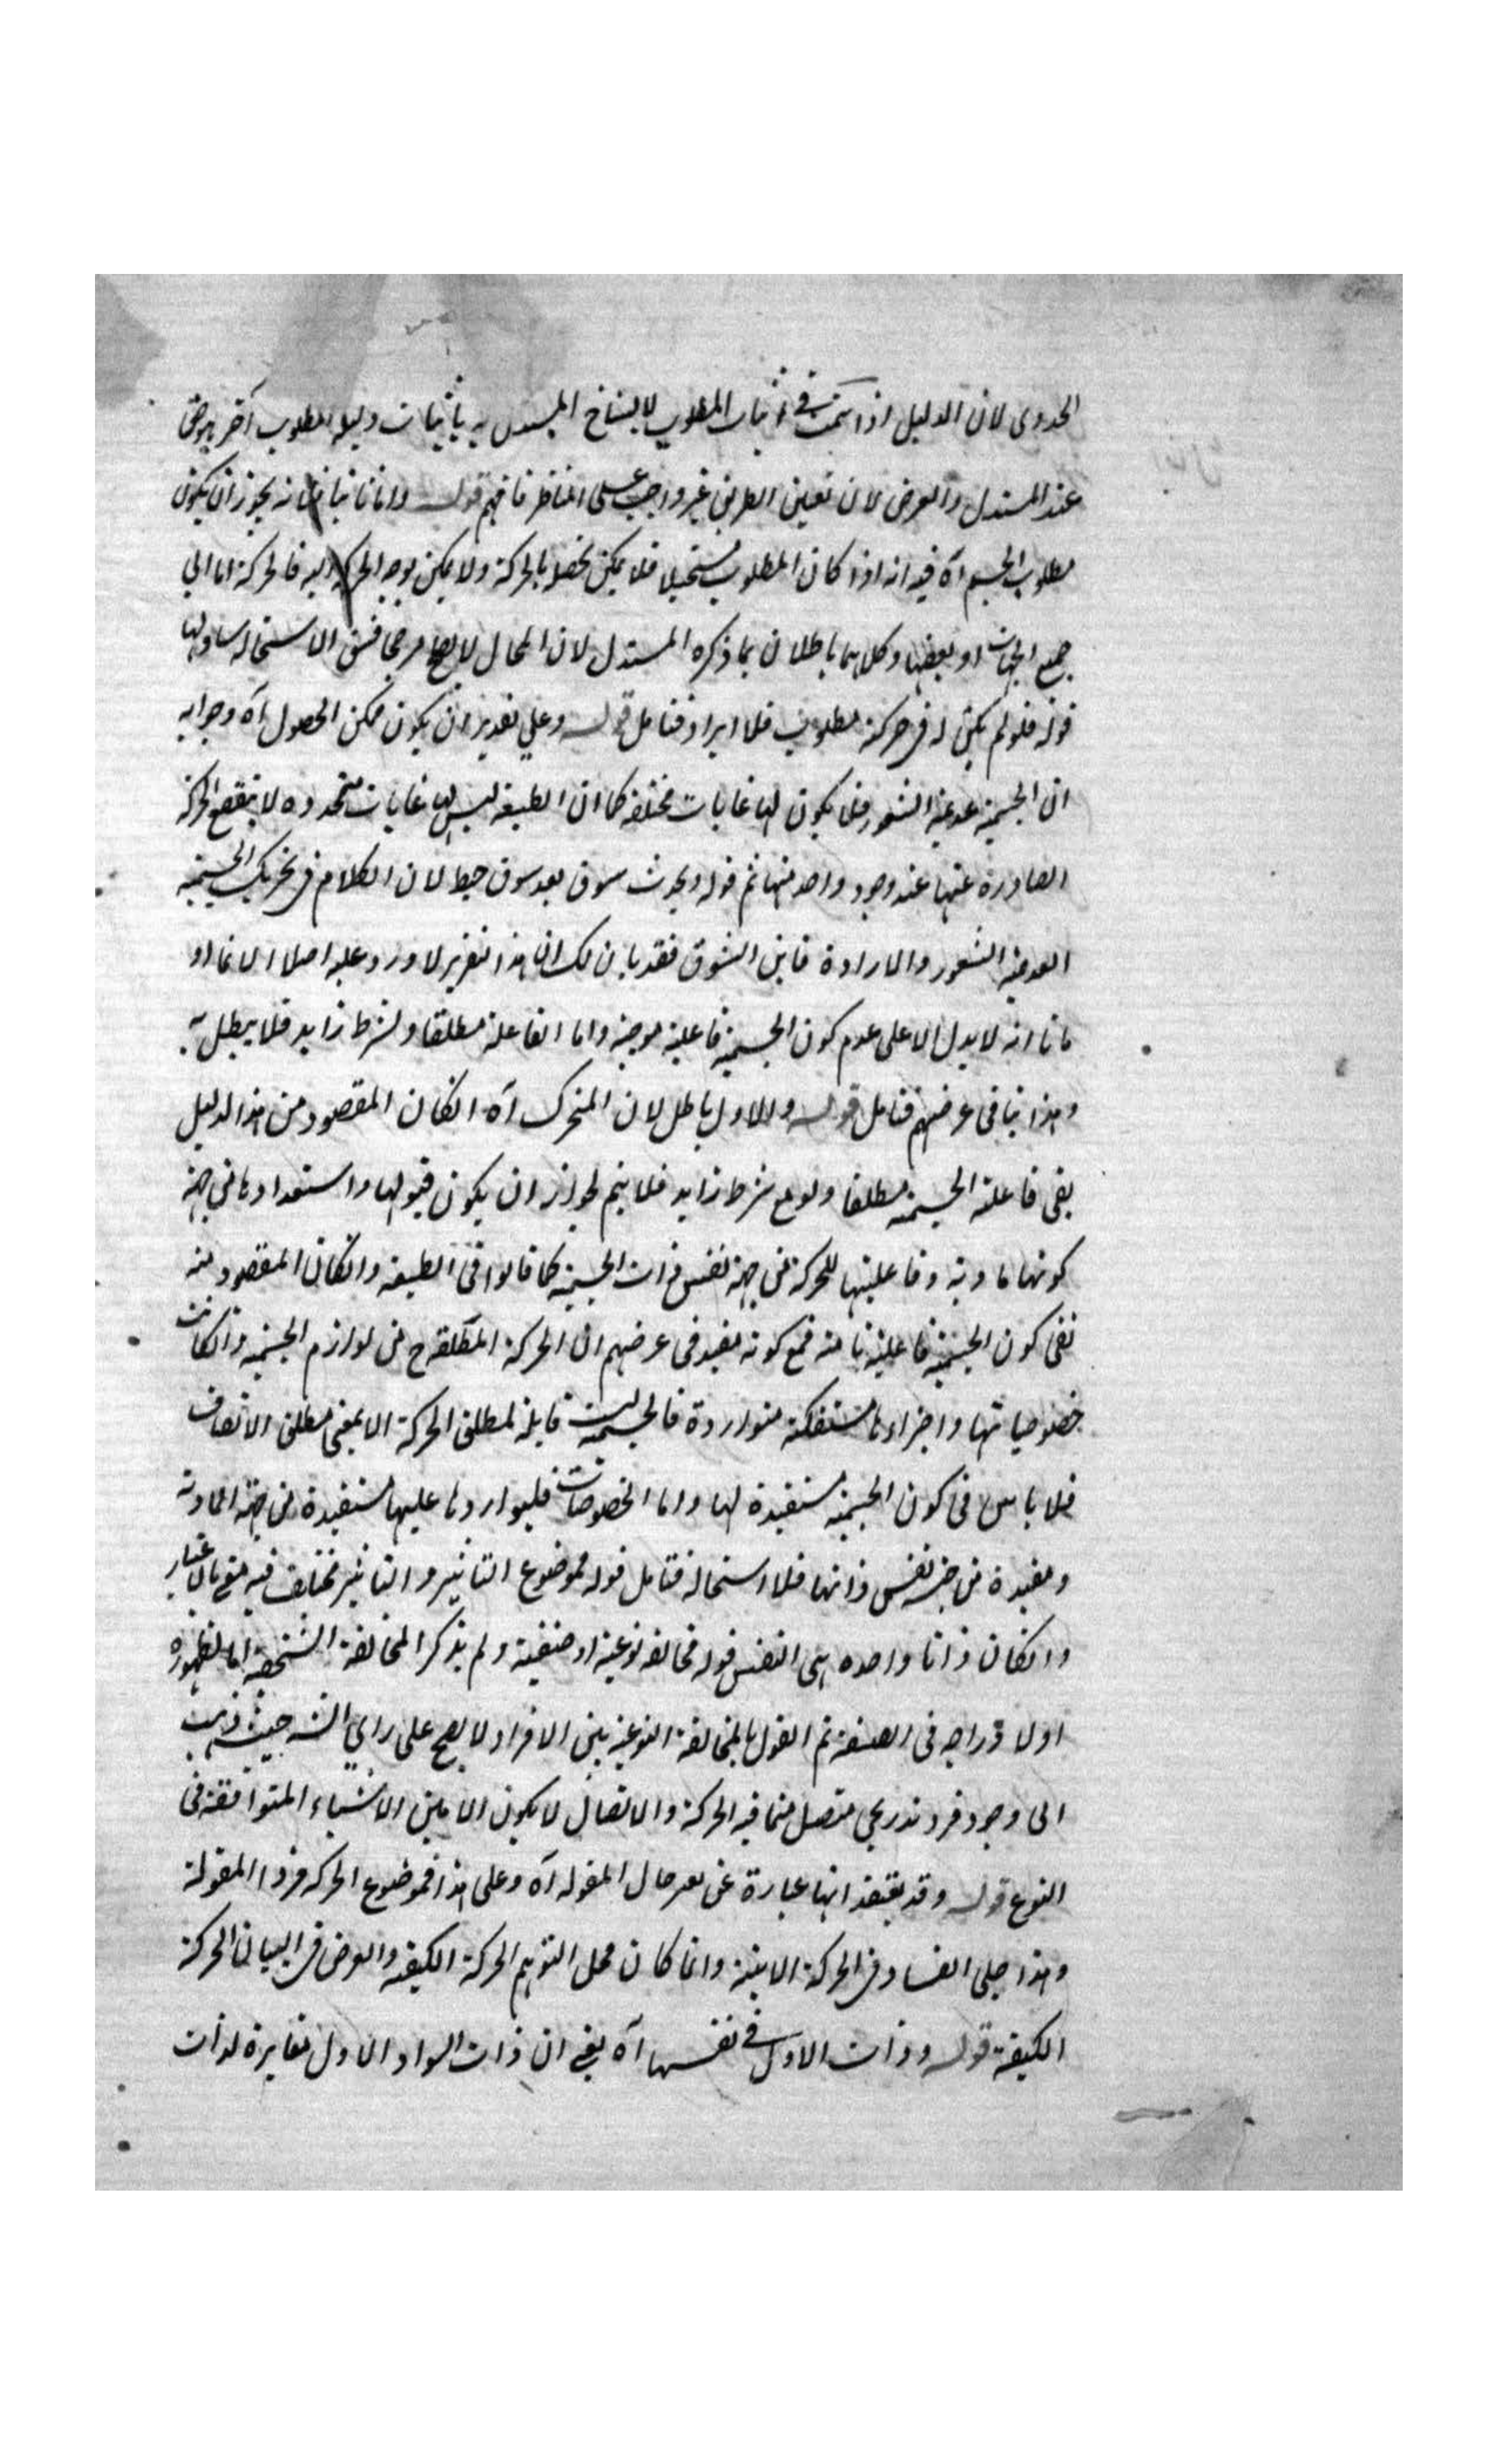 الجدوى لان الدليل اذا تمت في اثبات المطلوب لا يناخ المستدل به باثبات دليله لمطلوب آخر
عند المستدل والعرض لان تعيين الطريق غير واجب على المناظر فافهم قوله واما ثانيا فلانه يجوز ان يكون
مطلوب الجسم آه فيه انه اذا كان المطلوب مستحيلا فلا يمكن تحصل بالحركة ولا يمكن توجه الحركة اليه فالحركة اما الى
جميع الجهات او بعضها وكلاهما باطلان بما ذكره المستدل لان المحال لا يصلح مرجحا فشق الاستحالة
قوله فلو لم يكن له في حركته مطلوب فلا ايراد فتامل قوله وعلى تقدير ان يكون ممكن الحصول آه وجوابه
ان الجسمية عديمة الشعور فلا يكون لها غايات مختلفة كما ان الطبيعة ليس لها غايات متعددة لا ينقطع الحركة
الصادرة عنها عند وجود واحد منها ثم قوله ويحدث شوق بعد شوق خبط لان الكلام في تحريك الجسمية
العديمة الشعور والارادة فاين الشوق فقد بان لك ان هذا التقرير لا ورود عليه اصلا الا
ما انه لا يدل الا على عدم كون الجسمية فاعلية موجبة واما الفاعلة مطلقا ولشرط زايد فلا يبطل به
وهذا ينافي غرضهم فتامل قوله والاول باطل لان المتحرك آه ان كان المقصود من هذا الدليل
نفي فاعلية الجسمية مطلقا ولو مع شرط زايد فلا يتم لجواز ان يكون قبولها واستعدادها من جهة
كونها مادية وفاعليتها للحركة من جهة نفس ذات الجسمية كما قالوا في الطبيعة وان كان المقصود منه
نفي كون الجسمية فاعلية تامة فمع كونه مفيد في غرضهم ان الحركة المطلقة ح من لوازم الجسمية وان كانت
خصوصياتها واجزاءها منفكة متواردة فالجسمية ليست قابلة لمطلق الحركة الا بمعنى مطلق الاتصاف
فلا باس في كون الجسمية مستفيدة لها واما الخصوصات فليتواردها عليها مستفيدة من جهة المادة
ومفيدة من جهة نفس ذاتها فلا استحالة فتامل قوله فموضوع التاثير والتاثير مختلف فيه بالاعتبار
وان كان ذاتا واحدة هي النفس قوله مخالفة نوعية او صنفية ولم يذكر المخالفة الشخصية اما لظهوره
او لاندراجه في الصنفية ثم القول بالمخالفة النوعية بين الافراد لا يصح على راي الشيخ حيث ذهب
الى وجود فرد تدريجي متصل مما فيه الحركة والاتصال لا يكون الا بين الاشياء المتوافقة في
النوع قوله وقد يعتقد انها عبارة عن تغير حال المقولة آه وعلى هذا فموضوع الحركة فرد المقولة
وهذا جلي الفساد في الحركة الاينية وانما كان محل التوهم الحركة الكيفية والعرض في البيان الحركة
الكيفية قوله وذات الاول في نفسها آه يعني ان ذات السواد الاول مغايرة لذات